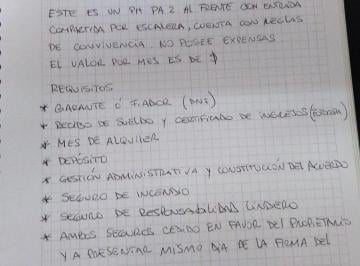 ESTE ES UN PH PA 2 AL FRENTE CON ENTRADA
COMPARTIDA POR ESCALERA, CUENTA CON REGLAS
DE CONVIVENCIA. NO POSEE EXPENSAS
EL VALOR POR MES ES DE $
REQUISITOS
* GARANTE Ó FIADOR (DNI)
* RECIBO DE SUELDO Y CERTIFICADO DE INGRESOS
* MES DE ALQUILER
* DEPÓSITO
* GESTIÓN ADMINISTRATIVA Y CONSTITUCIÓN DEL ACUERDO
* SEGURO DE INCENDIO
* SEGURO DE RESPONSABILIDAD LINDERO
* AMBOS SEGUROS CEDIDO EN FAVOR DEL PROPIETARIO
Y A PRESENTAR MISMO DIA DE LA FIRMA DEL